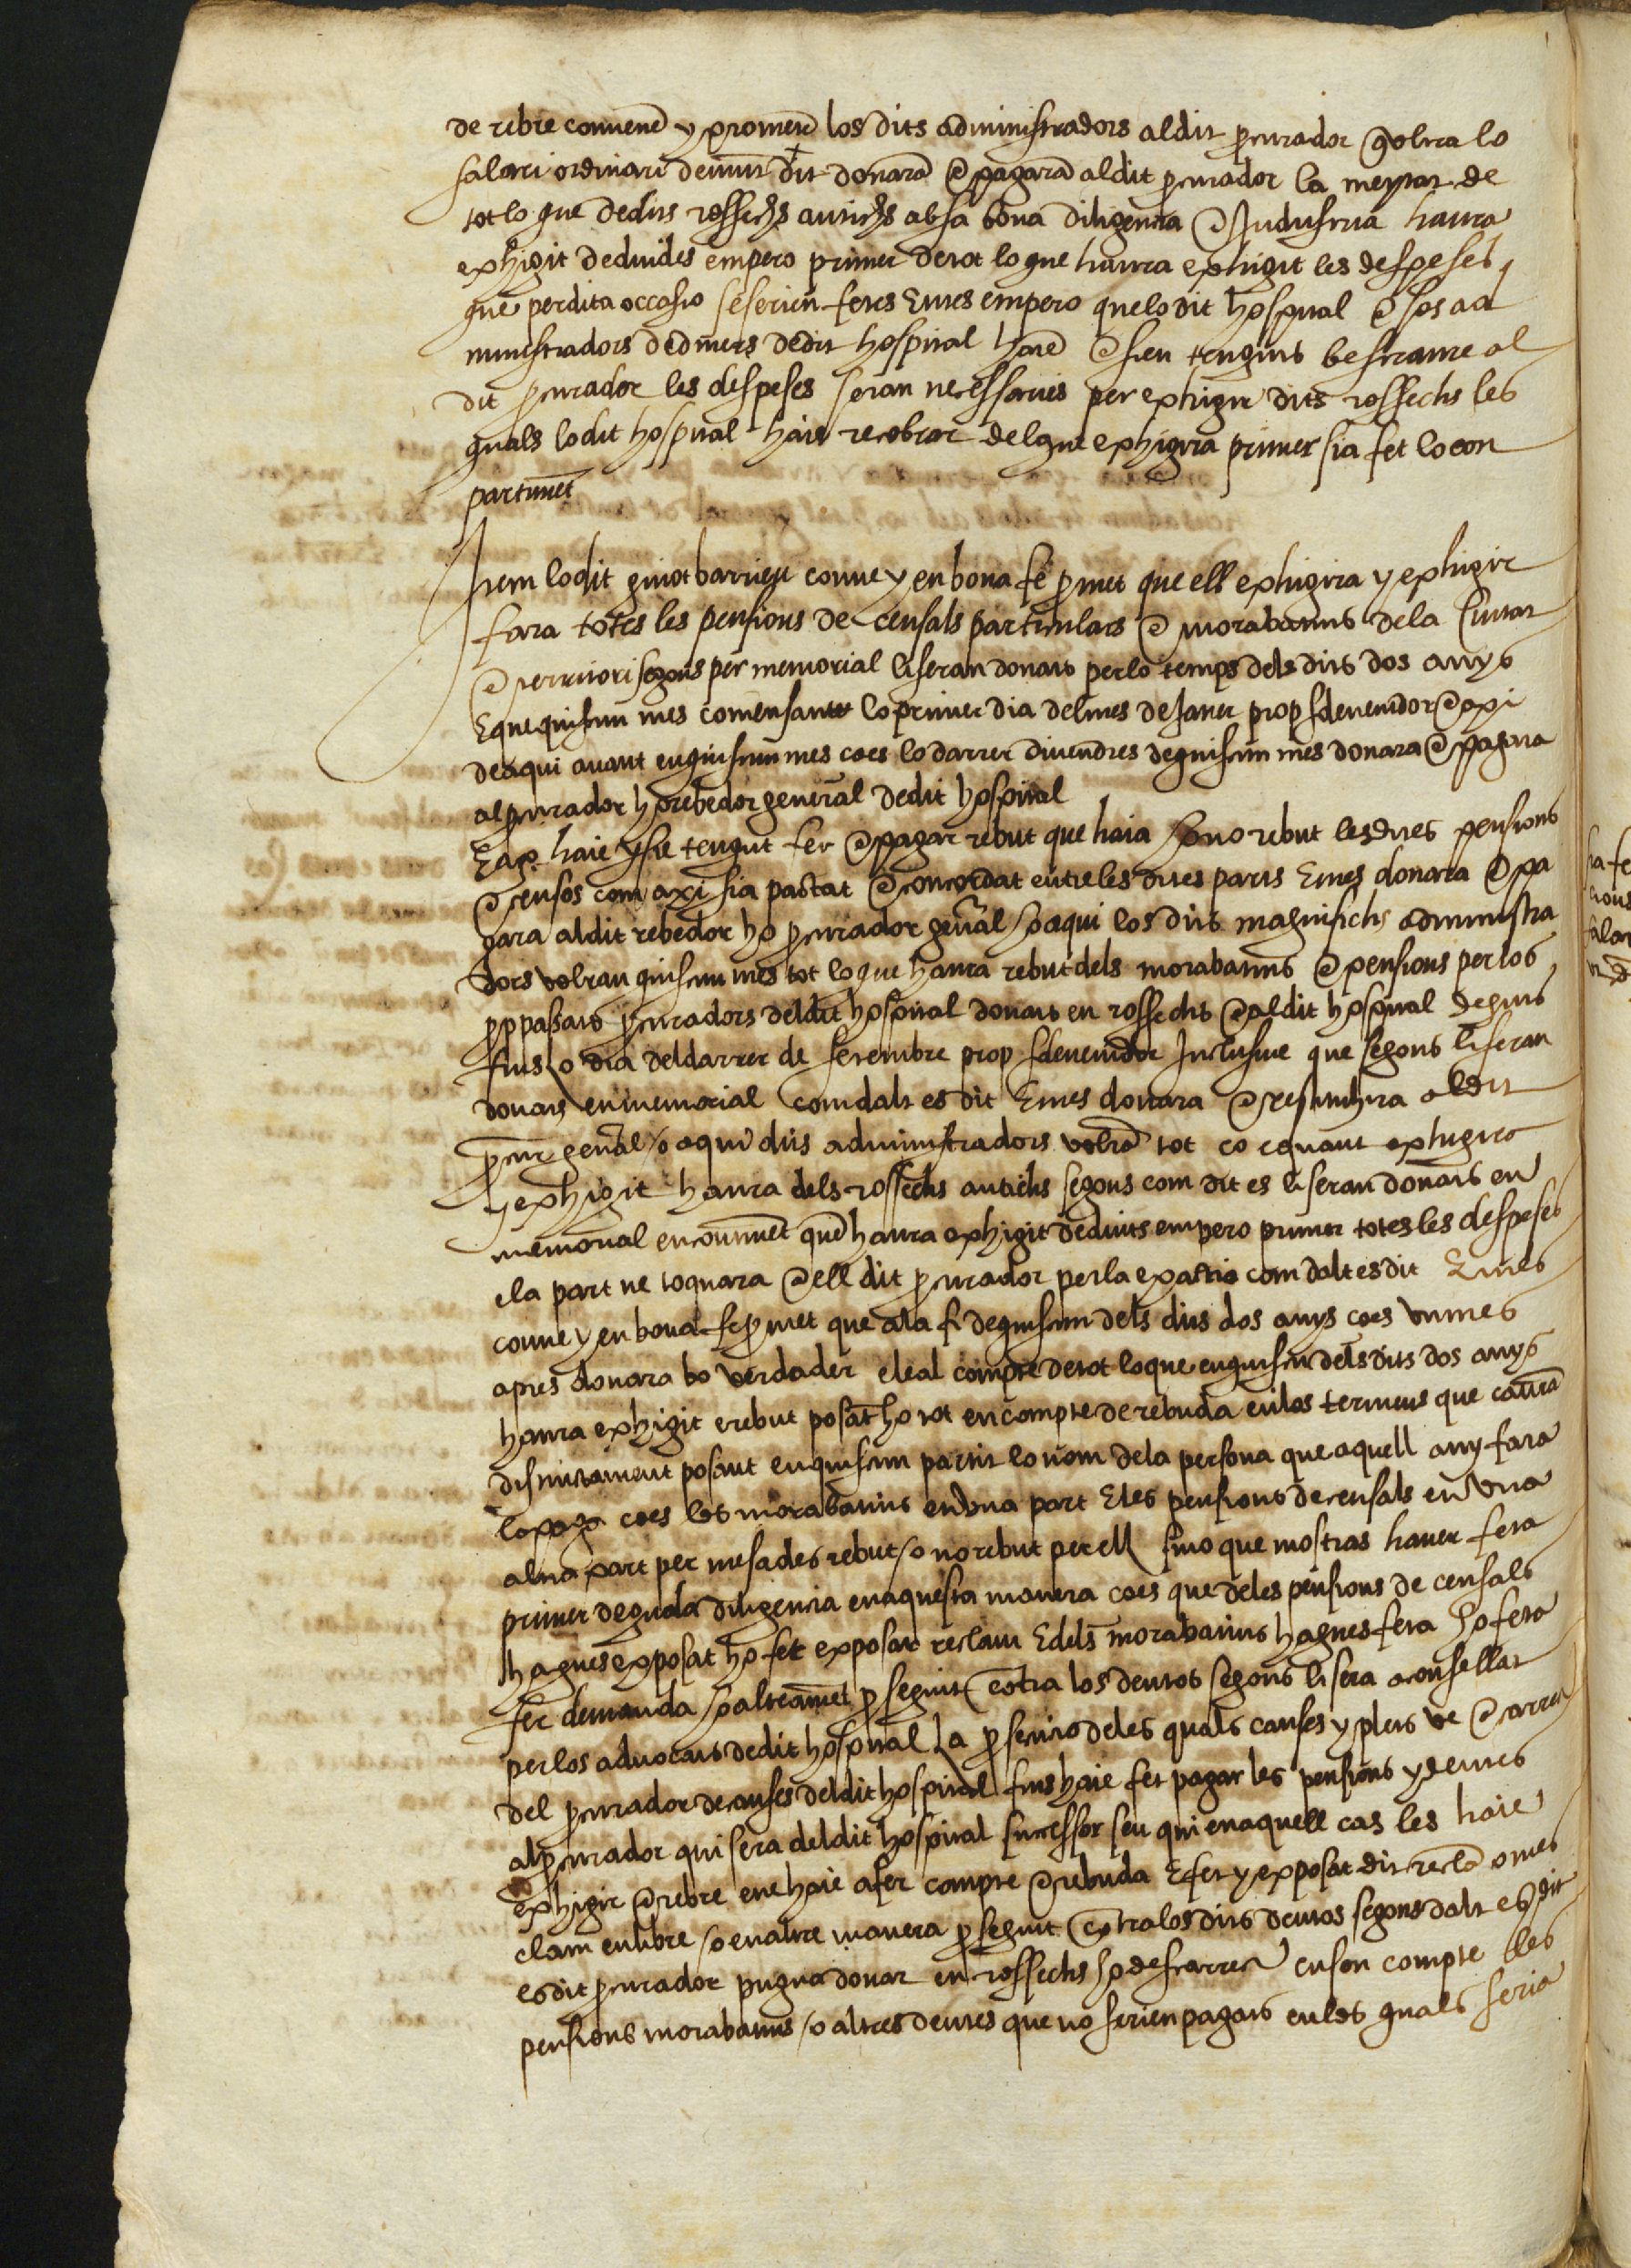 de rebre convenē y prometē los dits administradors al dit ꝓcurador q̄ oltra lo
salari ordinari demūt dit donarā e pagarā al dit ꝓcurador la meytat de
tot lo que de dits rossechs antichs ab sa bona diligencia e Industria haura
exhigit deduides empero primer de tot lo que haura exhigit les despeses
que per dita occasio se serien fetes E mes empero que lo dit hospital e los ad
ministradors de diners de dit hospital haiē e sien tenguts bestraure al
dit ꝓcurador les despeses seran necessaries per exhigir dits rossechs les
quals lo dit hospital haie recobrar del que exhigira primer sia fet lo con
partimēt
Item lo dit guiot barrieu conue y en bona fe ꝓmet que ell exhigira y exhigir
fara totes les pensions de censals particulars e morabatins de la Ciutat
e territori segons per memorial li seran donats per lo temps dels dits dos anys
E que quiscun mes comensant lo primer dia del mes de Janer prop sdevenidor e axi
de aqui auant en quiscun mes coes lo darrer divendres de quiscun mes donara e pagara
al ꝓcurador ho rebedor general de dit hospital
E axo haie e sie tengut fer e pagar rebut que haia ho no rebut les dites pensions
e censos com axi sia pactat e concordat entre les dites parts E mes donara e pa
gara al dit rebedor ho ꝓcurador gēnal ho a qui los dits magnifichs administra
dors volran quiscun mes tot lo que haura rebut dels morabatins e pensions per los
ꝓppassats ꝓcuradors del dit hospital donats en rossechs e al dit hospital deguts
fins lo dia del darrer de setembre prop sdevenidor Inclusive que segons li seran
donats en memorial com dalt es dit E mes donara e restituhira al dit
ꝓcur gēnal / o a qui dits administradors volrā tot co e quant exhigira
y exhigit haura dels rossechs antichs segons com dit es li seran donats en
memorial encontinēt que haura exhigit deduits empero primer totes les despeses
e la part ne toquara e ell dit ꝓcurador per la exactio com dalt es dit E mes
conue y en bona fe ꝓmet que a la fi de quiscun dels dits dos anys coes vn mes
apres donara bo verdader e leal compte de tot lo que en quiscu dels dits dos anys
haura exhigit e rebut posat ho tot en compte de rebuda en los termens que caurā
distinctament posant en quiscun partit lo nom de la persona que aquell any fara
lo paga coes los morabatins en vna part E les pensions de censals en vna
altra part per mesades rebut / o no rebut per ell sino que mostras hauer feta
primer deguda diligencia en aquesta manera coes que de les pensions de censals
hagues exposat ho fet exposar reclam E dels morabatins hagues feta ho feta
fer demanda ho altramēt ꝓseguit cōtra los deutos segons li sera aconsellat
per los aduocats de dit hospital La ꝓsecucio de les quals causes y plets ve a carrech
del ꝓcurador de causes del dit hospital fins haie fet pagar les pensions y deutes
al ꝓcurador qui sera del dit hospital successor seu qui en aquell cas les haie
exhigir e rebre e ne haie a fer compte e rebuda E fet y exposat dit reclā o mes
clam en libre / o en altre manera ꝓseguit cōtra los dits deutos segons dalt es dit
lo dit ꝓcurador pugua donar en rossechs ho descarrech en son compte les
pensions morabatins / o altres deutes que no serien pagats en los quals seria